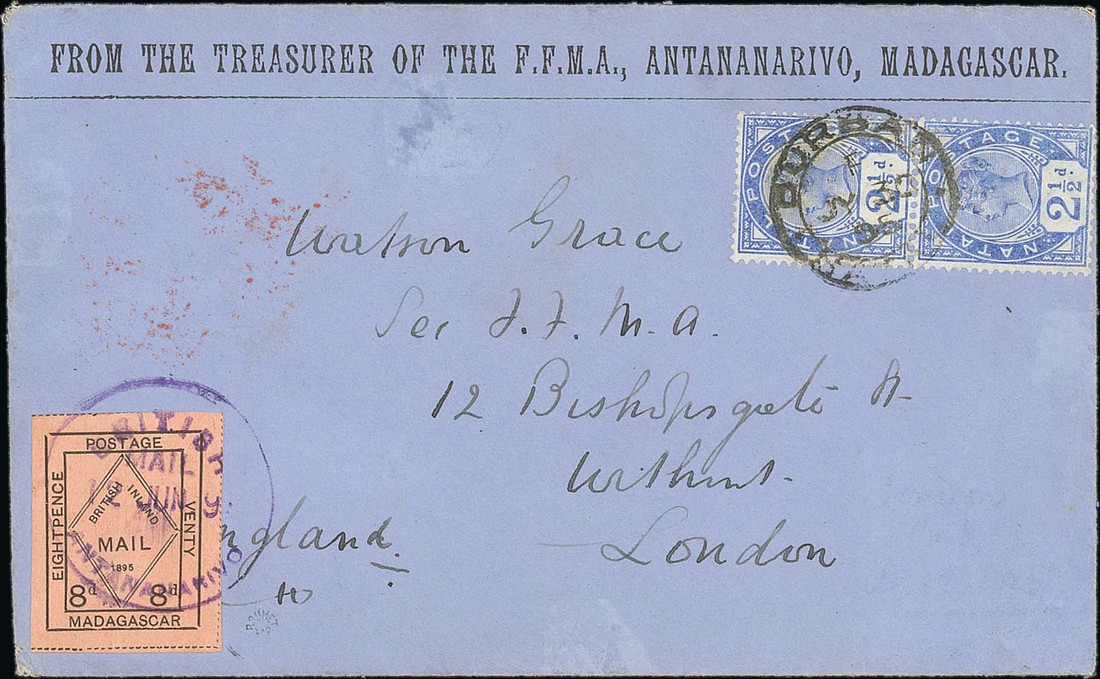 FROM THE TREASURER OF THE F.F.M.A., ANTANANARIVO, MADAGASCAR.
POSTAGE NATAL 2½d.
POSTAGE NATAL 2½d.
DURBAN
Watson Grace
Sec F.F.M.A.
12 Bishopsgate St
Without
London
England
BRITISH
MAIL
12 JUN 9
ANTANANARIVO
POSTAGE
EIGHTPENCE
VENTY
BRITISH INLAND
MAIL
1895
8d 8d
MADAGASCAR